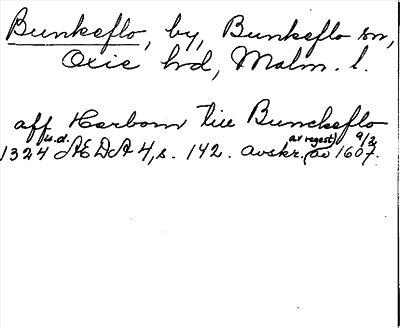 Bunkeflo, by, Bunkeflo sn,
Oxie hrd, Malm. l.
aff Harborn till Bunckeflo
1324 u.d. ÆDA 4, s. 142. avskr. (av regest) av 1607. 9/2